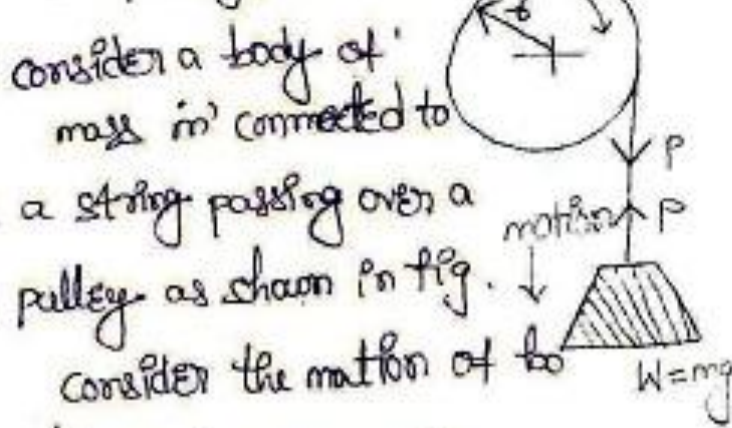 consider a body of
mass 'm' connected to
a string passing over a
pulley as shown in fig.
consider the motion of bo
r
P
P
motion
W=mg